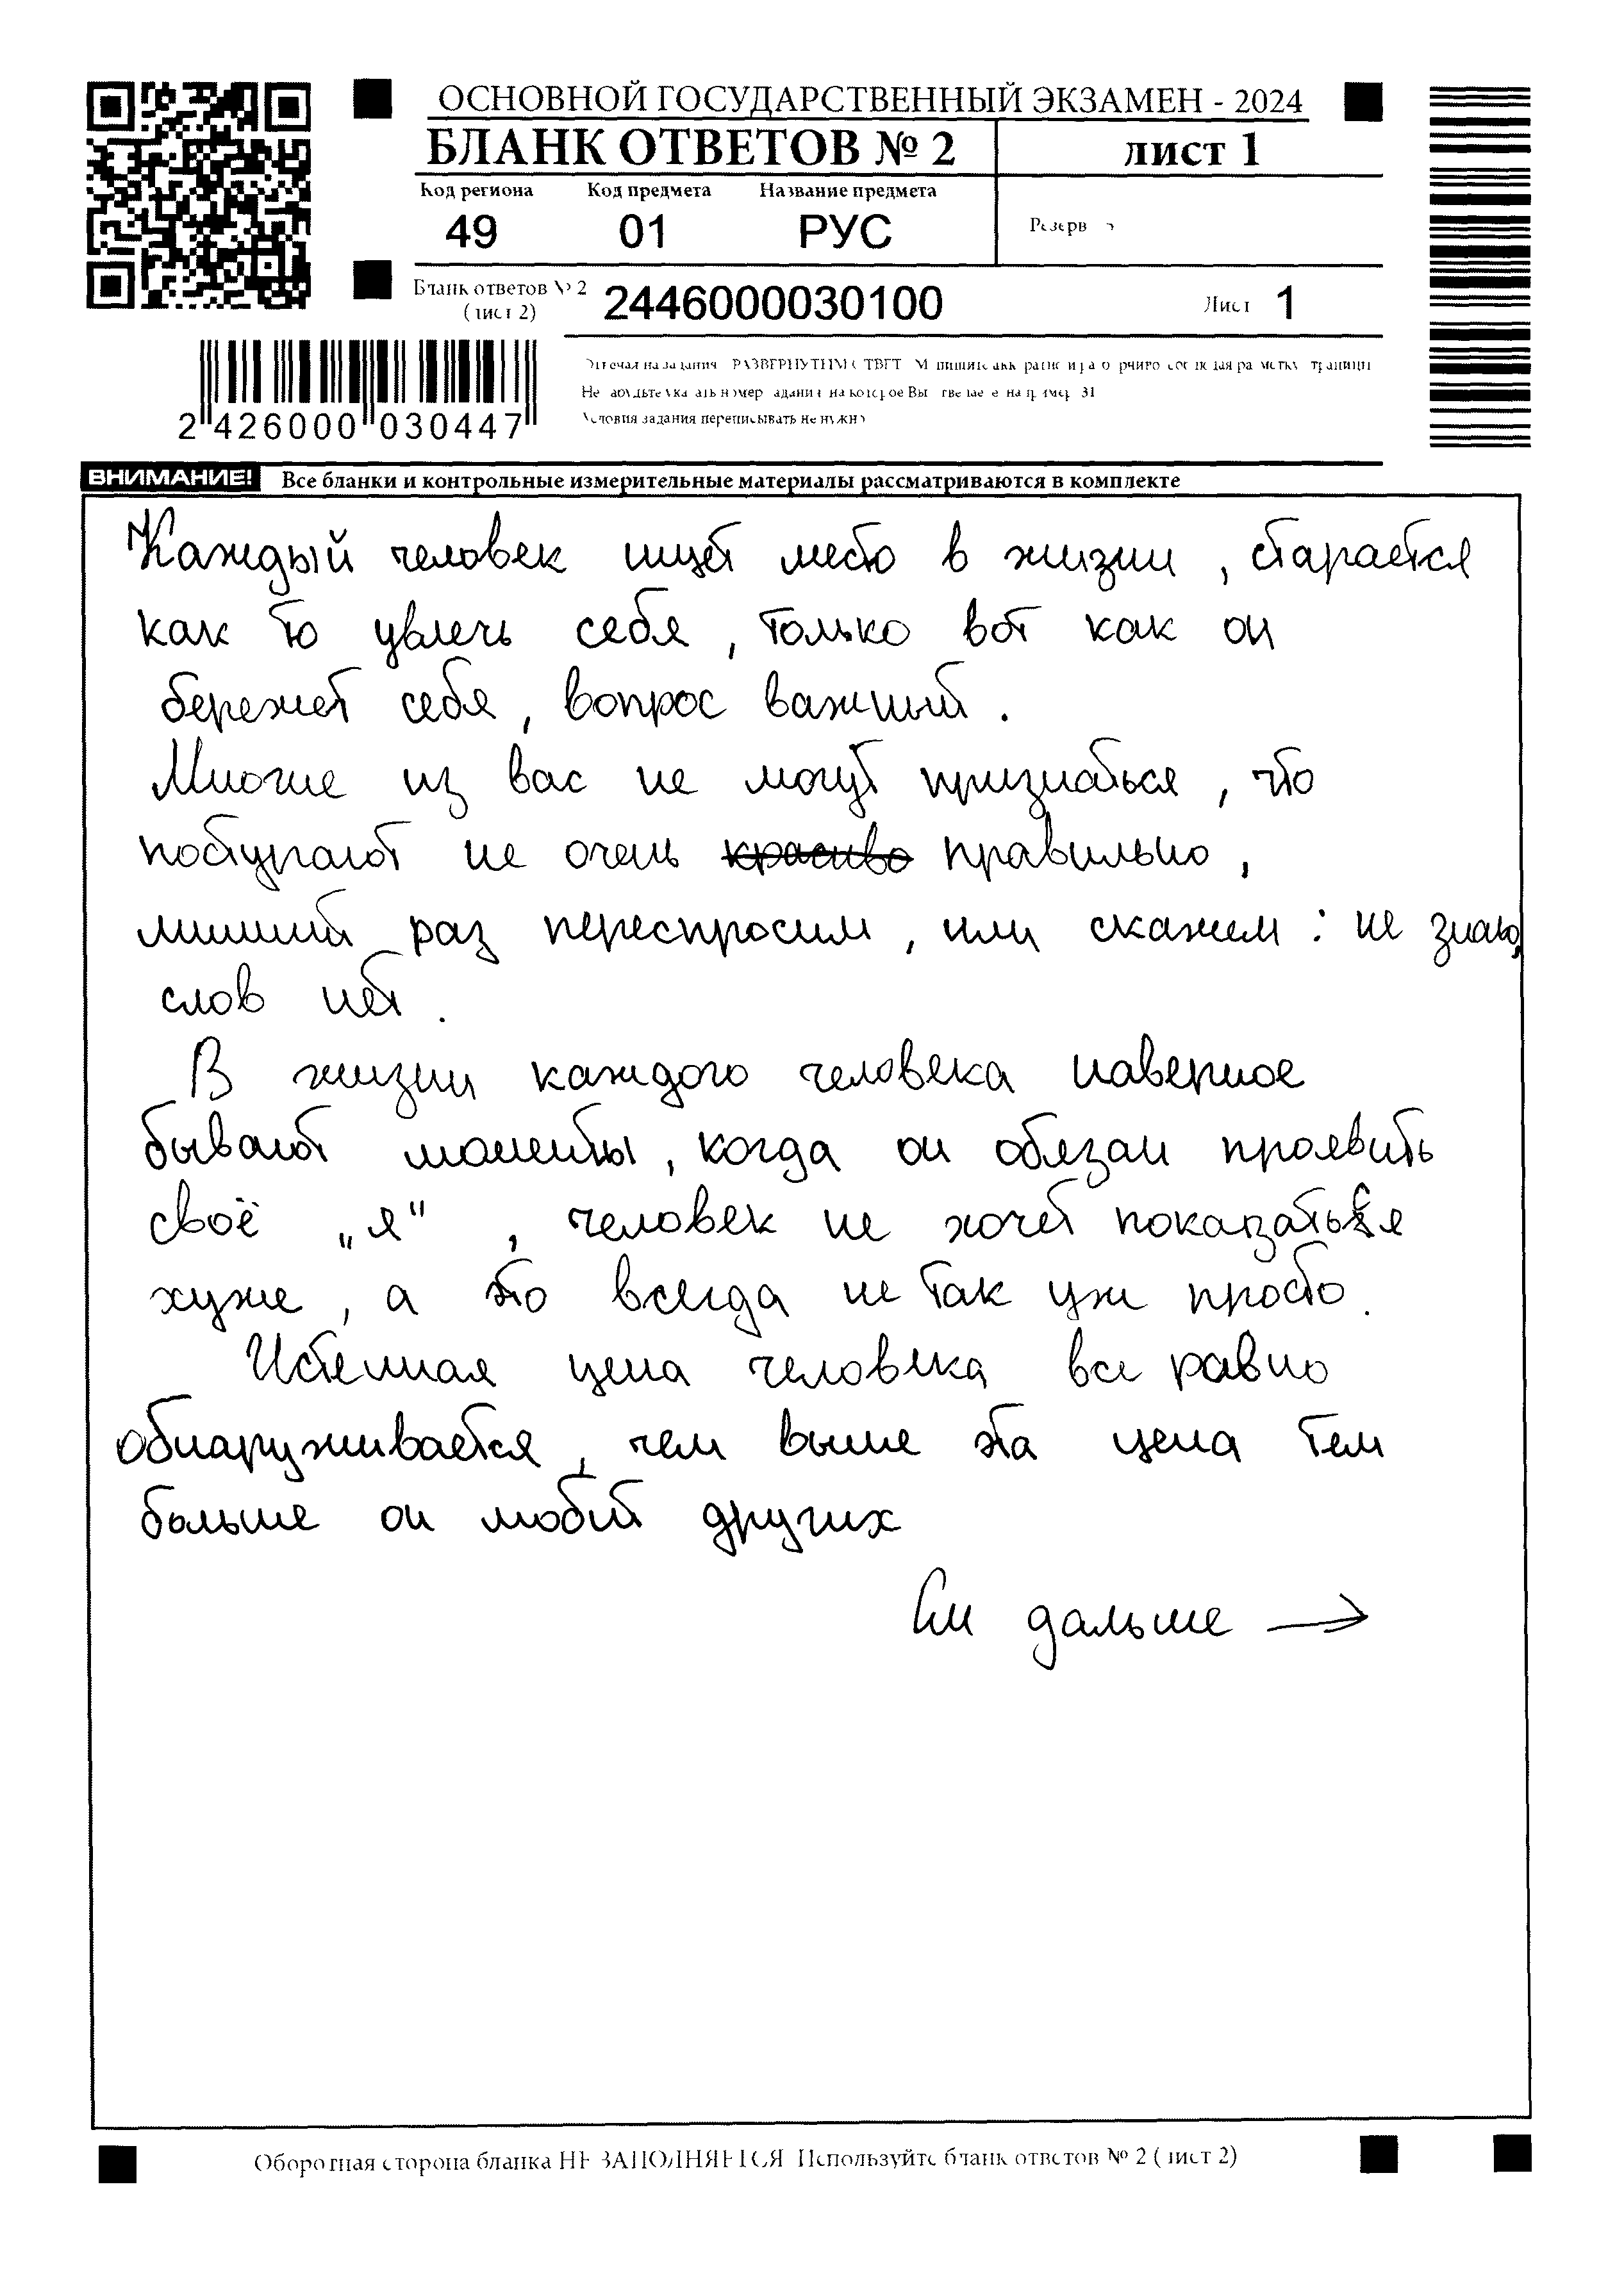 ОСНОВНОЙ ГОСУДАРСТВЕННЫЙ ЭКЗАМЕН - 2024
БЛАНК ОТВЕТОВ № 2 лист 1
Код региона Код предмета Название предмета
49 01 РУС
Резерв
Бланк ответов № 2
(лист 2) 2446000030100 Лист 1
2 426000 030447
Условия задания переписывать не нужно
ВНИМАНИЕ! Все бланки и контрольные измерительные материалы рассматриваются в комплекте
Каждый человек ищет место в жизни, старается
как то увлечь себя, только вот как он
бережет себя, вопрос важный.
Многие из вас не могут признаться, что
поступают не очень красиво правильно,
лишний раз переспросим, или скажем: не знаю,
слов нет.
В жизни каждого человека наверное
бывают моменты, когда он обязан проявить
своё „я", человек не хочет показаться
хуже, а это всегда не так уж просто.
Истенная цена человека все равно
обнаруживается, чем выше эта цена тем
больше он любит других
См дальше →
Оборотная сторона бланка НЕ ЗАПОЛНЯЕТСЯ Используйте бланк ответов № 2 (лист 2)